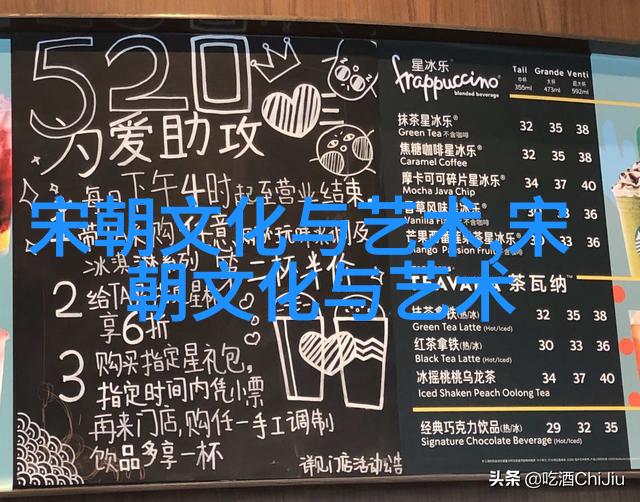 520
为爱助攻
1 每日下午4时起至营业结束
冰淇淋系列 第二杯半价
2 给TA
享6折
3 购买指定星礼包,
指定时间内凭小票
再来门店,购任一手工调制
饮品多享一杯
详见门店活动公告
宋朝文化与艺术 宋
朝文化与艺术
星冰乐®
frappuccino®
blended beverage
Tall Grande Venti
中杯 大杯 超大杯
355ml 473ml 592ml
抹茶星冰乐® 32 35 38
Green Tea 不含咖啡
焦糖咖啡星冰乐® 32 35 38
Caramel Coffee
摩卡可可碎片星冰乐® 34 37 40
Mocha Java Chip
36
不含咖啡
33 36
Passion Fruit 不含咖啡
茶瓦纳™
32 35 38
Green Tea Latte (Hot/Iced)
红茶拿铁(热/冰) 30 33 36
Black Tea Latte (Hot/Iced)
冰摇桃桃乌龙茶 34 37 40
Iced Shaken Peach Oolong Tea
经典巧克力饮品(热/冰) 29 32 35
Signature Chocolate Beverage (Hot/Iced)
头条 @吃酒ChiJiu